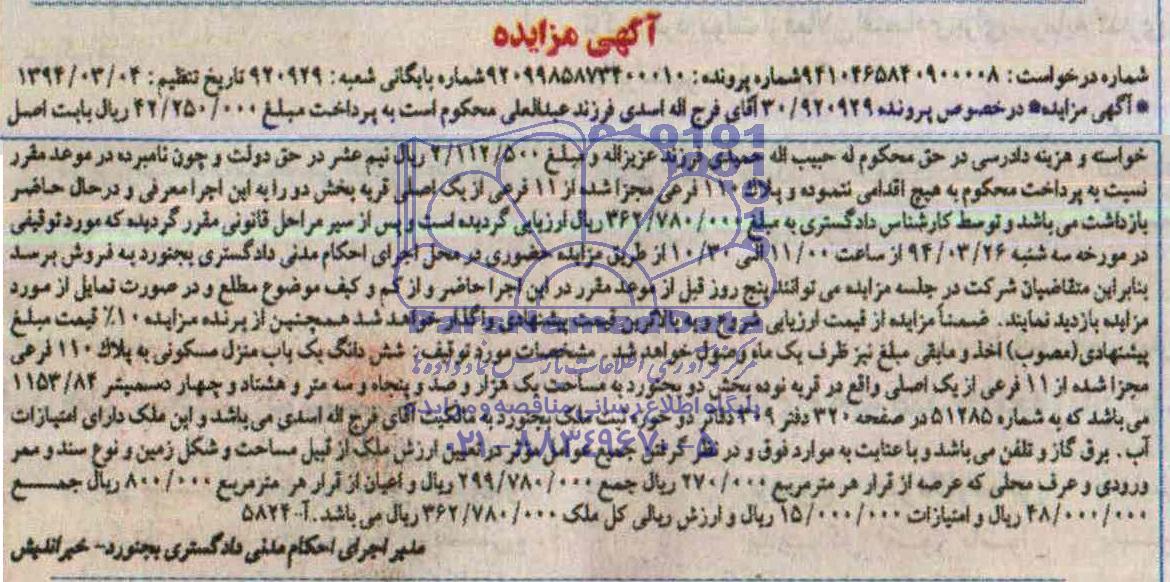 آگهی مزایده
شماره درخواست: ۹۴۱۰۴۶۵۸۴۰۹۰۰۰۰۸شماره پرونده: ۹۲۰۹۹۸۵۸۷۳۴۰۰۰۱۰شماره بایگانی شعبه: ۹۲۰۹۲۹ تاریخ تنظیم: ۱۳۹۴/۰۳/۰۴
* آگهی مزایده* در خصوص پرونده ۳۰/۹۲۰۹۲۹ آقای فرج اله اسدی فرزند عبدالعلی محکوم است به پرداخت مبلغ ۴۲/۲۵۰/۰۰۰ ریال بابت اصل
خواسته و هزینه دادرسی در حق محکوم له حبیب اله حمیدی فرزند عزیزاله و مبلغ ۲/۱۱۲/۵۰۰ ریال نیم عشر در حق دولت و چون نامبرده در موعد مقرر
نسبت به پرداخت محکوم به هیچ اقدامی ننموده و پلاک ۱۱۰ فرعی مجزا شده از ۱۱ فرعی از یک اصلی قریه بخش دو را به این اجرا معرفی و درحال حاضر
بازداشت می باشد و توسط کارشناس دادگستری به مبلغ ۳۶۲/۷۸۰/۰۰۰ ریال ارزیابی گردیده است و پس از سیر مراحل قانونی مقرر گردیده که مورد توقیفی
در مورخه سه شنبه ۹۴/۰۳/۲۶ از ساعت ۱۱/۰۰ الی ۱۰/۳۰ از طریق مزایده حضوری در محل اجرای احکام مدنی دادگستری بجنورد به فروش برسد
بنابراین متقاضیان شرکت در جلسه مزایده می توانند پنج روز قبل از موعد مقرر در این اجرا حاضر و از کم و کیف موضوع مطلع و در صورت تمایل از مورد
مزایده بازدید نمایند. ضمناً مزایده از قیمت ارزیابی شروع و به بالاترین قیمت پیشنهادی واگذار خواهد شد همچنین از برنده مزایده ۱۰٪ قیمت مبلغ
پیشنهادی (مصوب) اخذ و مابقی مبلغ نیز ظرف یک ماه وصول خواهد شد. مشخصات مورد توقیف: شش دانگ یک باب منزل مسکونی به پلاک ۱۱۰ فرعی
مجزا شده از ۱۱ فرعی از یک اصلی واقع در قریه نوده بخش دو بجنورد به مساحت یک هزار و صد و پنجاه و سه متر و هشتاد و چهار دسیمتر ۱۱۵۳/۸۴
می باشد که به شماره ۵۱۲۸۵ در صفحه ۳۲۰ دفتر دفاتر دو حوزه ثبت ملک بجنورد به مالکیت آقای فرج اله اسدی می باشد و این ملک دارای امتیازات
آب. برق گاز و تلفن می باشد و با عنایت به موارد فوق و در نظر گرفتن جمیع عوامل موثر در تعیین ارزش ملک از قبیل مساحت و شکل زمین و نوع سند و ممر
ورودی و عرف محلی که عرصه از قرار هر مترمربع ۲۷۰/۰۰۰ ریال جمع ۲۹۹/۷۸۰/۰۰۰ ریال و اعیان از قرار هر مترمربع ۸۰۰/۰۰۰ ریال جمع
۴۸/۰۰۰/۰۰۰ ریال و امتیازات ۱۵/۰۰۰/۰۰۰ ریال و ارزش ریالی کل ملک ۳۶۲/۷۸۰/۰۰۰ ریال می باشد. آ-۵۸۲۴
مدیر اجرای احکام مدنی دادگستری بجنورد- خبراندیش
پایگاه اطلاع رسانی مناقصه و مزایده
۰۲۱-۸۸۳۴۹۶۷۰-۵